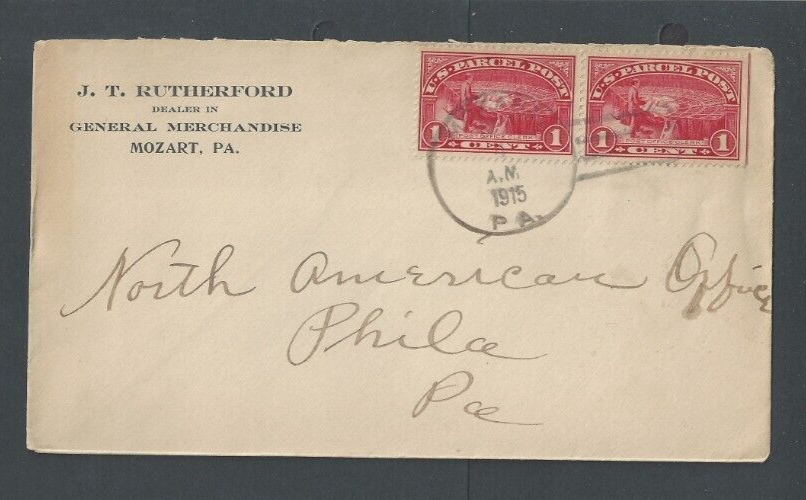 J. T. RUTHERFORD
DEALER IN
GENERAL MERCHANDISE
MOZART, PA.
U.S. PARCEL POST
1 POST OFFICE CLERK 1
CENT
U.S. PARCEL POST
1 POST OFFICE CLERK 1
CENT
A.M.
1915
PA.
North American Office
Phila
Pa